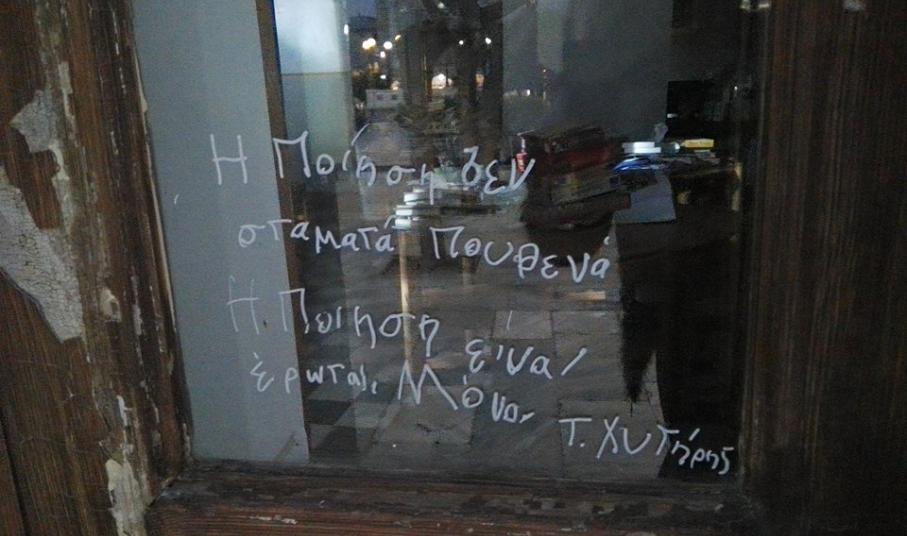 Η Ποίηση δεν
σταματά πουθενά
Η Ποίηση είναι
έρωτας. Μόνο.
Τ. Χυτήρης